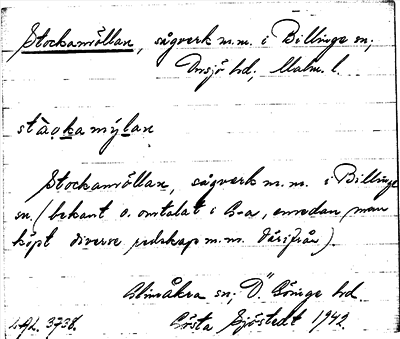 Stockamöllan, sågverk m.m. i Billinge sn;
Onsjö hd; Malm. l.
ståo̧kamy̆lan
Stockamöllan, sågverk m.m. i Billinge
sn. (bekant o. omtalat i G-a, emedan man
köpt diverse redskap m.m. därifrån).
Glimåkra sn; Ö. Göinge hd.
Gösta Sjöstedt 1942.
3738.